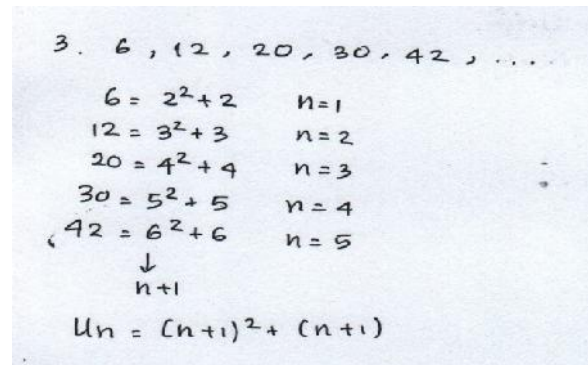 3. 6, 12, 20, 30, 42, ...
6 = 2² + 2 n=1
12 = 3² + 3 n=2
20 = 4² + 4 n=3
30 = 5² + 5 n=4
42 = 6² + 6 n=5
↓
n+1
Un = (n+1)² + (n+1)